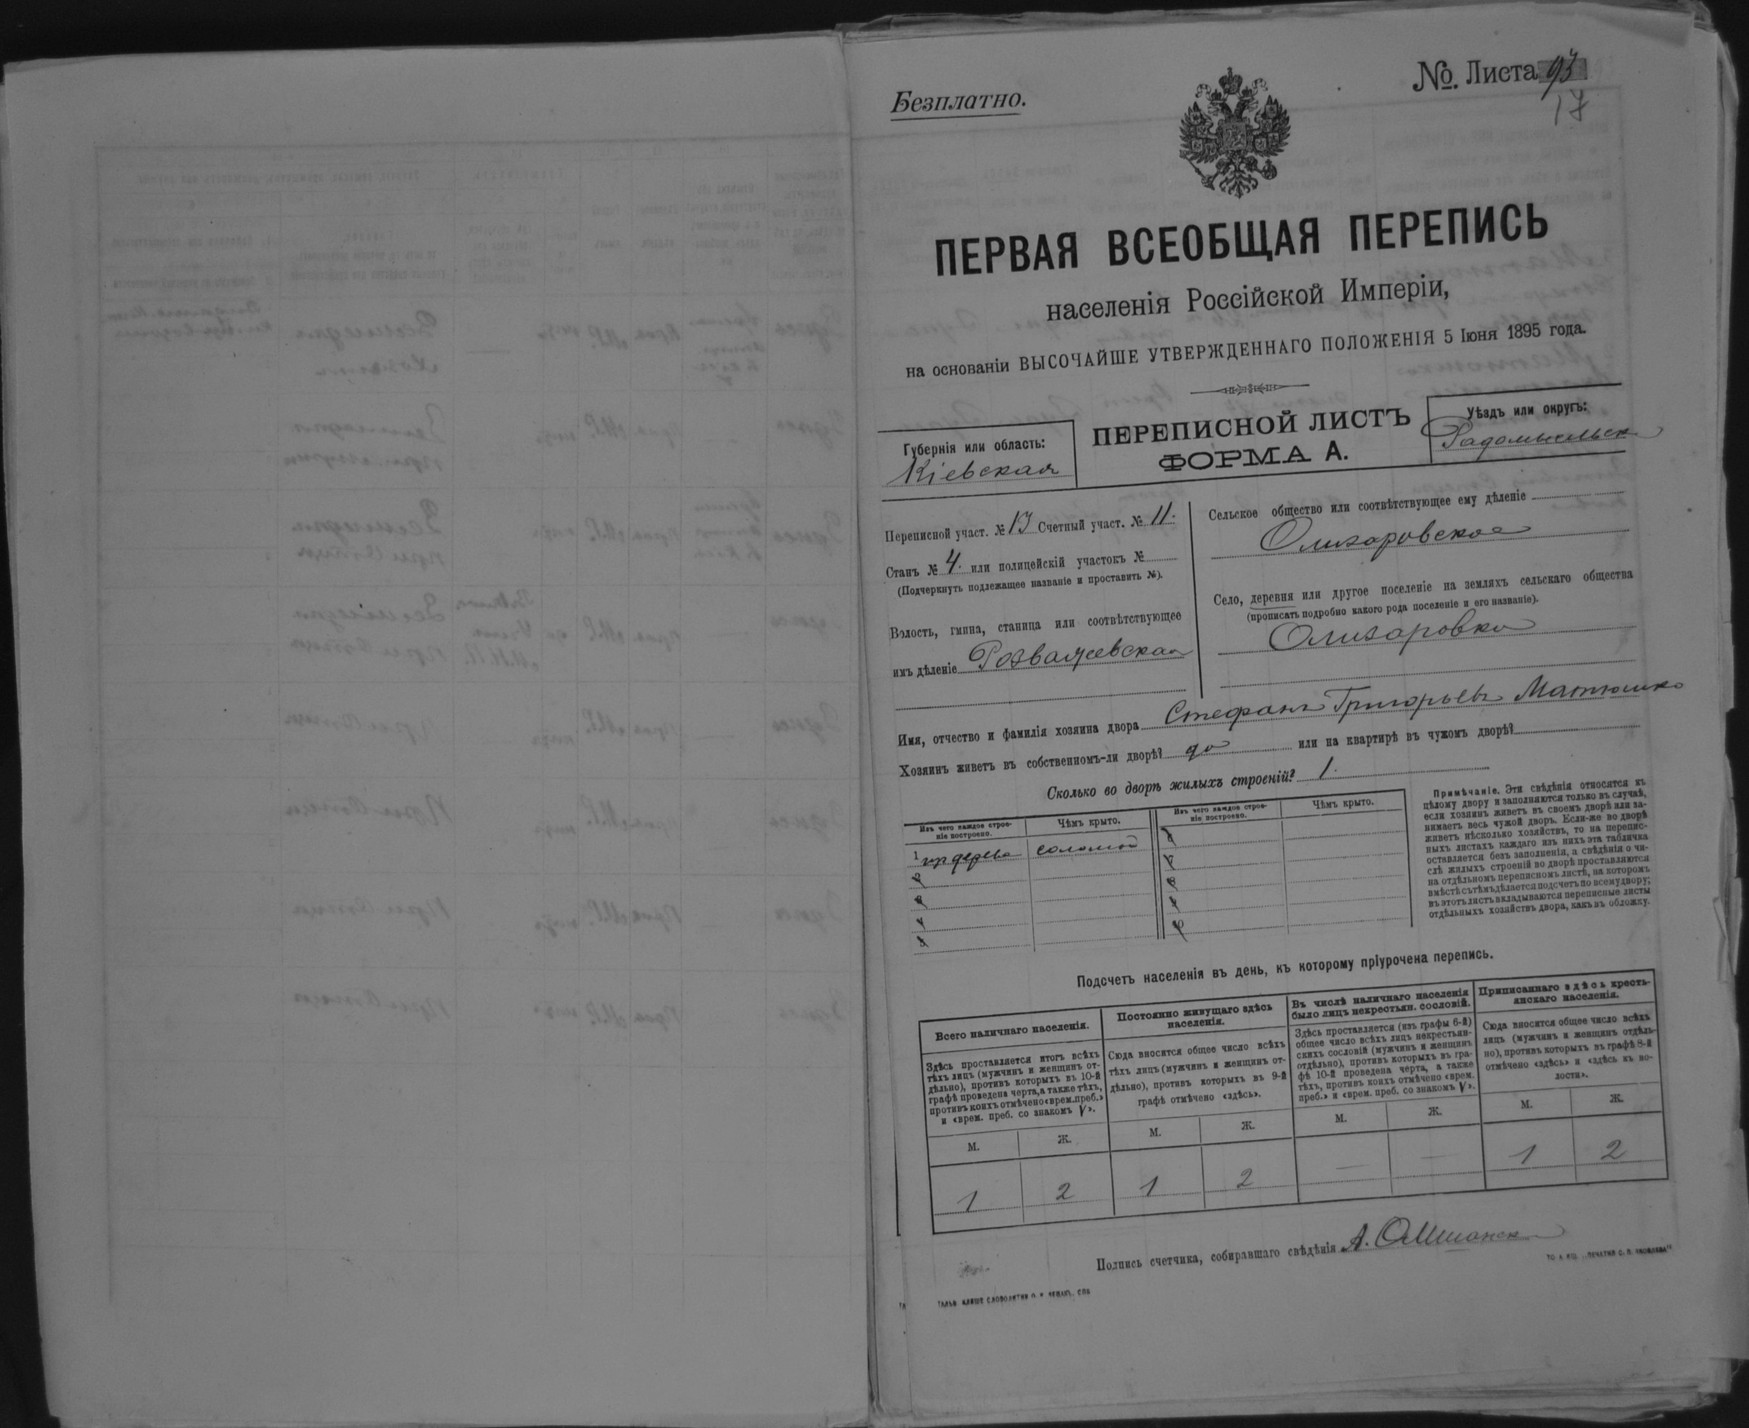 Безплатно.
№. Листа 93
17
ПЕРВАЯ ВСЕОБЩАЯ ПЕРЕПИСЬ
населенія Россійской Имперіи,
на основаніи ВЫСОЧАЙШЕ УТВЕРЖДЕННАГО ПОЛОЖЕНІЯ 5 Іюня 1895 года.
Губернія или область:
Кіевская
ПЕРЕПИСНОЙ ЛИСТЪ
ФОРМА А.
Уѣздъ или округъ:
Радомысльск
Переписной участ. № 13 Счетный участ. № 11.
Станъ № 4. или полицейскій участокъ №
(Подчеркнуть подлежащее названіе и проставить №).
Волость, гмина, станица или соотвѣтствующее
имъ дѣленіе Розважевская
Сельское общество или соотвѣтствующее ему дѣленіе
Олизаровское
Село, деревня или другое поселеніе на земляхъ сельскаго общества
(прописать подробно какого рода поселеніе и его названіе).
Олизаровка
Имя, отчество и фамилія хозяина двора Стефанъ Григорьевъ Матюшко
Хозяинъ живетъ въ собственномъ-ли дворѣ? да или на квартирѣ въ чужомъ дворѣ?
Сколько во дворѣ жилыхъ строеній? 1.
Изъ чего каждое строе-
ніе построено.
Чѣмъ крыто.
1 изъ дерева соломой
2
3
4
5
Изъ чего каждое строе-
ніе построено.
Чѣмъ крыто.
6
7
8
9
10
Примѣчаніе. Эти свѣдѣнія относятся къ
цѣлому двору и заполняются только въ случаѣ,
если хозяинъ живетъ въ своемъ дворѣ или за-
нимаетъ весь чужой дворъ. Если-же во дворѣ
живетъ нѣсколько хозяйствъ, то на перепис-
ныхъ листахъ каждаго изъ нихъ эта табличка
оставляется безъ заполненія, а свѣдѣнія о чи-
слѣ жилыхъ строеній во дворѣ проставляются
на отдѣльномъ переписномъ листѣ, на которомъ
вмѣстѣ съ тѣмъ дѣлается подсчетъ по всему двору;
въ этотъ листъ вкладываются переписные листы
отдѣльныхъ хозяйствъ двора, какъ въ обложку.
Подсчетъ населенія въ день, къ которому пріурочена перепись.
Всего наличнаго населенія.
Здѣсь проставляется итогъ всѣхъ
тѣхъ лицъ (мужчинъ и женщинъ от-
дѣльно), противъ которыхъ въ 10-й
графѣ проведена черта, а также тѣхъ,
противъ коихъ отмѣчено «врем. преб.»
и «врем. преб. со знакомъ V».
М. Ж.
1 2
Постоянно живущаго здѣсь
населенія.
Сюда вносится общее число всѣхъ
тѣхъ лицъ (мужчинъ и женщинъ от-
дѣльно), противъ которыхъ въ 9-й
графѣ отмѣчено «здѣсь».
М. Ж.
1 2
Въ числѣ наличнаго населенія
было лицъ некрестьян. сословій.
Здѣсь проставляется (изъ графы 6-й)
общее число всѣхъ лицъ некрестьян-
скихъ сословій (мужчинъ и женщинъ
отдѣльно), противъ которыхъ въ гра-
фѣ 10-й проведена черта, а также
тѣхъ, противъ коихъ отмѣчено «врем.
преб.» и «врем. преб. со знакомъ V».
М. Ж.
— —
Приписаннаго здѣсь кресть-
янскаго населенія.
Сюда вносится общее число всѣхъ
лицъ (мужчинъ и женщинъ отдѣль-
но), противъ которыхъ въ графѣ 8-й
отмѣчено «здѣсь» и «здѣсь къ во-
лости».
М. Ж.
1 2
Подпись счетчика, собиравшаго свѣдѣнія А.